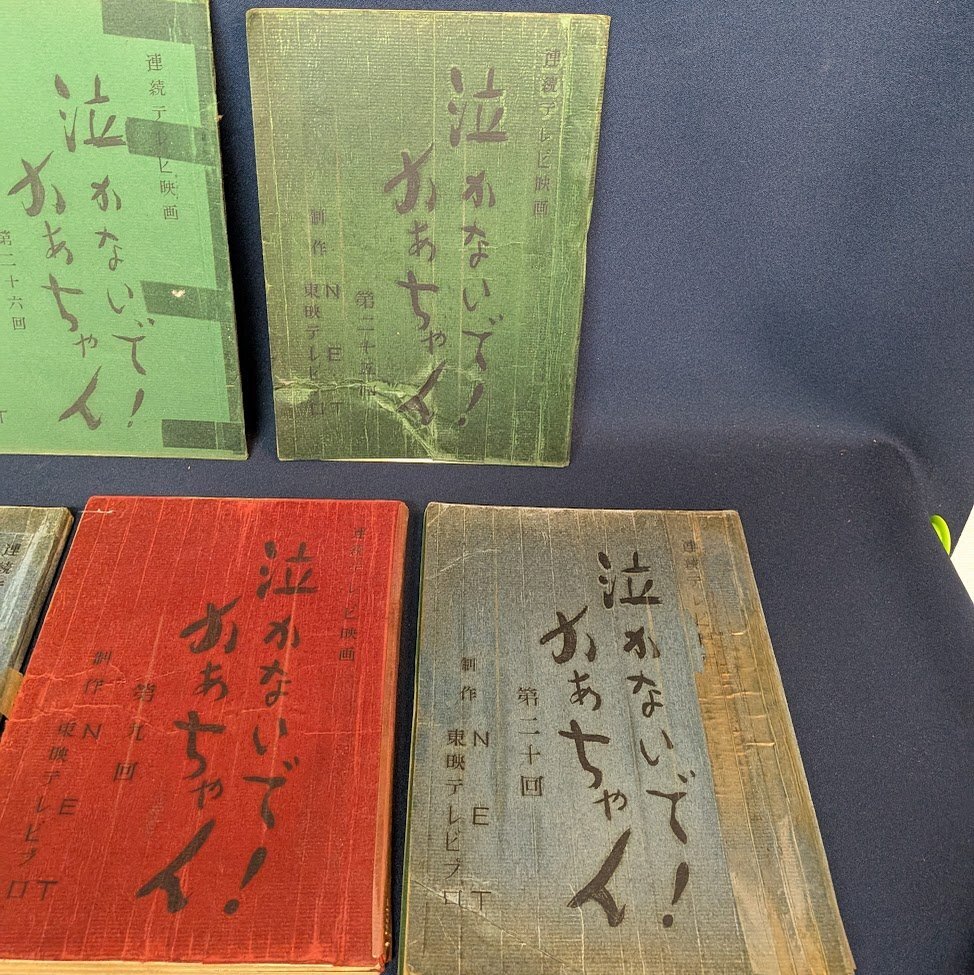 連続テレビ映画
泣かないで!
かあちゃん
第二十六回
T
連続テレビ映画
泣かないで!
かあちゃん
第二十五回
制作 NET
東映テレビプロ
連続テ
連続テレビ映画
泣かないで!
かあちゃん
第九回
制作 NET
東映テレビプロ
連続テレビ映
泣かないで!
かあちゃん
第二十回
制作 NET
東映テレビプロ